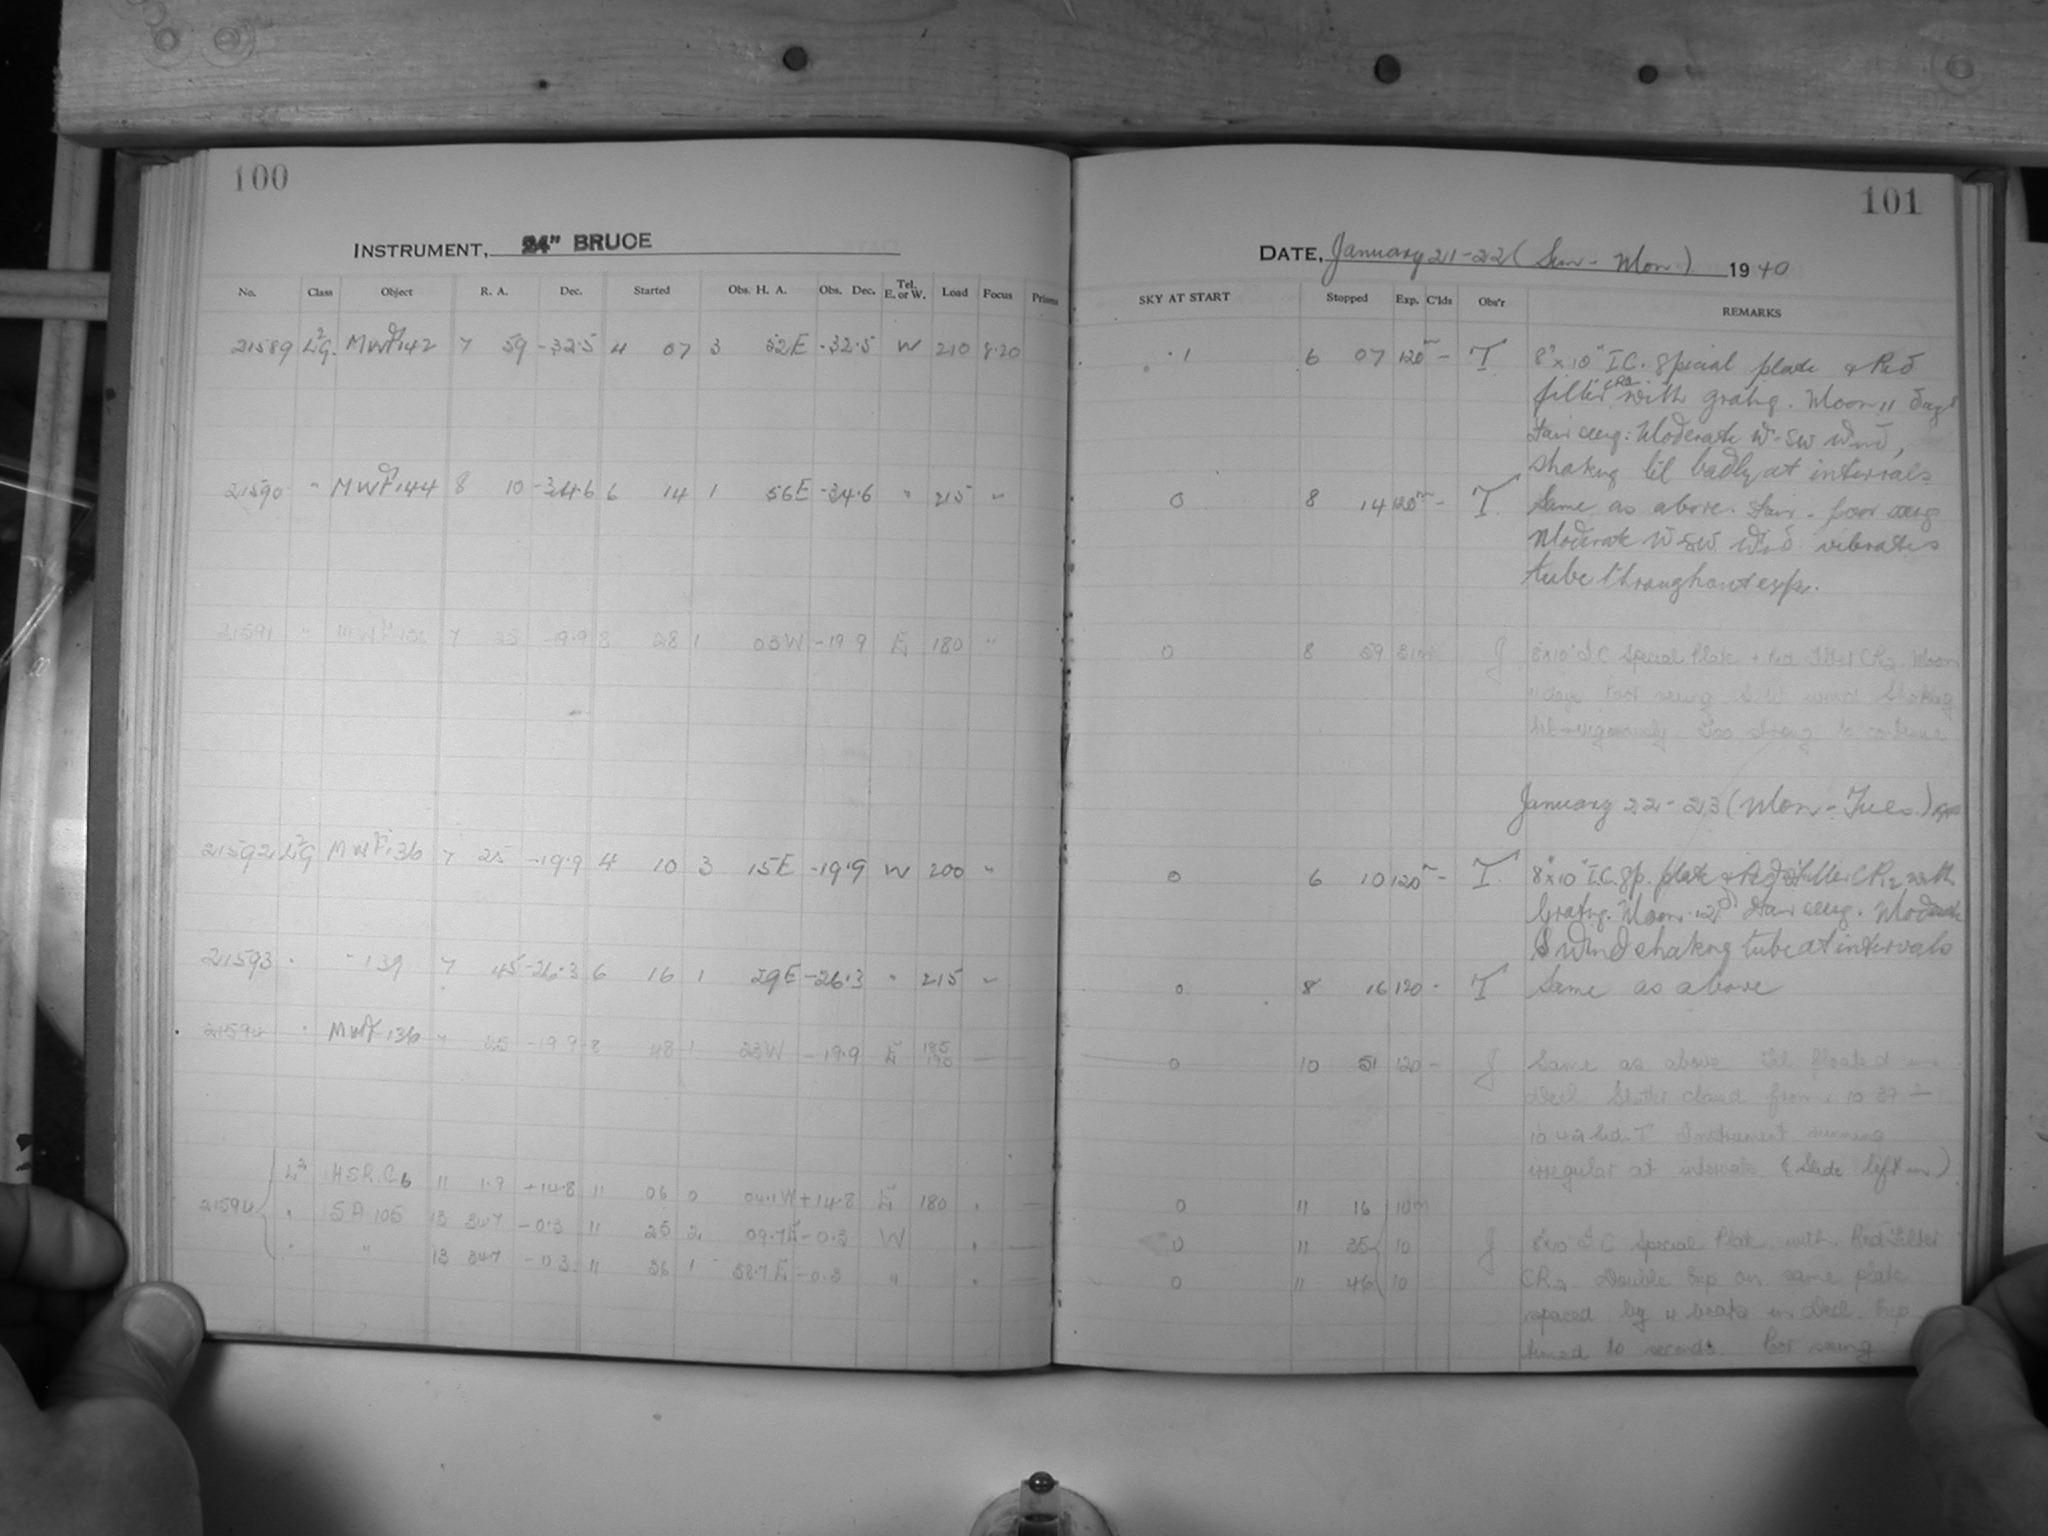 100
INSTRUMENT, 24" BRUCE
No. Class Object R. A. Dec. Started Obs. H. A. Obs. Dec. Tel. E. or W. Load Focus Prisms
21589 L²G. MWF142 7 59 -32.5 4 07 3 52E -32.5 W 210 8.20
21590 " MWF144 8 10 -34.6 6 14 1 56E -34.6 " 215 "
21591 " MWF136 7 25 -19.9 8 28 1 03W -19.9 E 180 "
21592 L²G MWF136 7 25 -19.9 4 10 3 15E -19.9 W 200 "
21593 " " 139 7 45 -26.3 6 16 1 29E -26.3 " 215 "
21594 " MWF136 7 25 -19.9 8 48 1 23W -19.9 E 185 190
L² H.S.R.C6 11 1.9 +14.8 11 06 0 04.1W +14.8 E 180
21594 " SA 105 13 34.7 -0.3 11 25 2 09.7E -0.3 W
" " 13 34.7 -0.3 11 36 1 58.7E -0.3 "
101
DATE, January 21-22 (Sun - Mon) 1940
SKY AT START Stopped Exp. C'lds Obs'r REMARKS
.1 6 07 120m - T 8"x10" I.C. Special plate & Red
filter CR2 with gratg. Moon 11 days
Fair seeg: Moderate W-SW Wind,
shakng tel badly at intervals
0 8 14 120m - T Same as above. Fair - poor seeg
Moderate W SW Wind vibrates
tube throughout exp.
0 8 59 31m J 8x10 I C Special Plate + Red Filter CR2. Moon
11 days Poor seeing S.W wind Shaking
tel vigorously. Too strong to continue
January 22-23 (Mon - Tues.) 1940
0 6 10 120m - T 8"x10" I.C. Sp. plate & Red Filter CR2 with
Gratg. Moon 12d Fair seeg. Moderate
S wind shakng tube at intervals
0 8 16 120 - T Same as above
0 10 51 120 - J Same as above Tel floated in
Decl. cloud from 10 39 -
10 42 Sid. T Instrument running
irregular at intervals (Slide left in)
0 11 16 10m
0 11 35 10 J 8x10 I C Special Plate with Red Filter
0 11 46 10 CR2 Double Exp on same plate
spaced by 4 in Decl. Exp
timed to seconds. Poor seeing